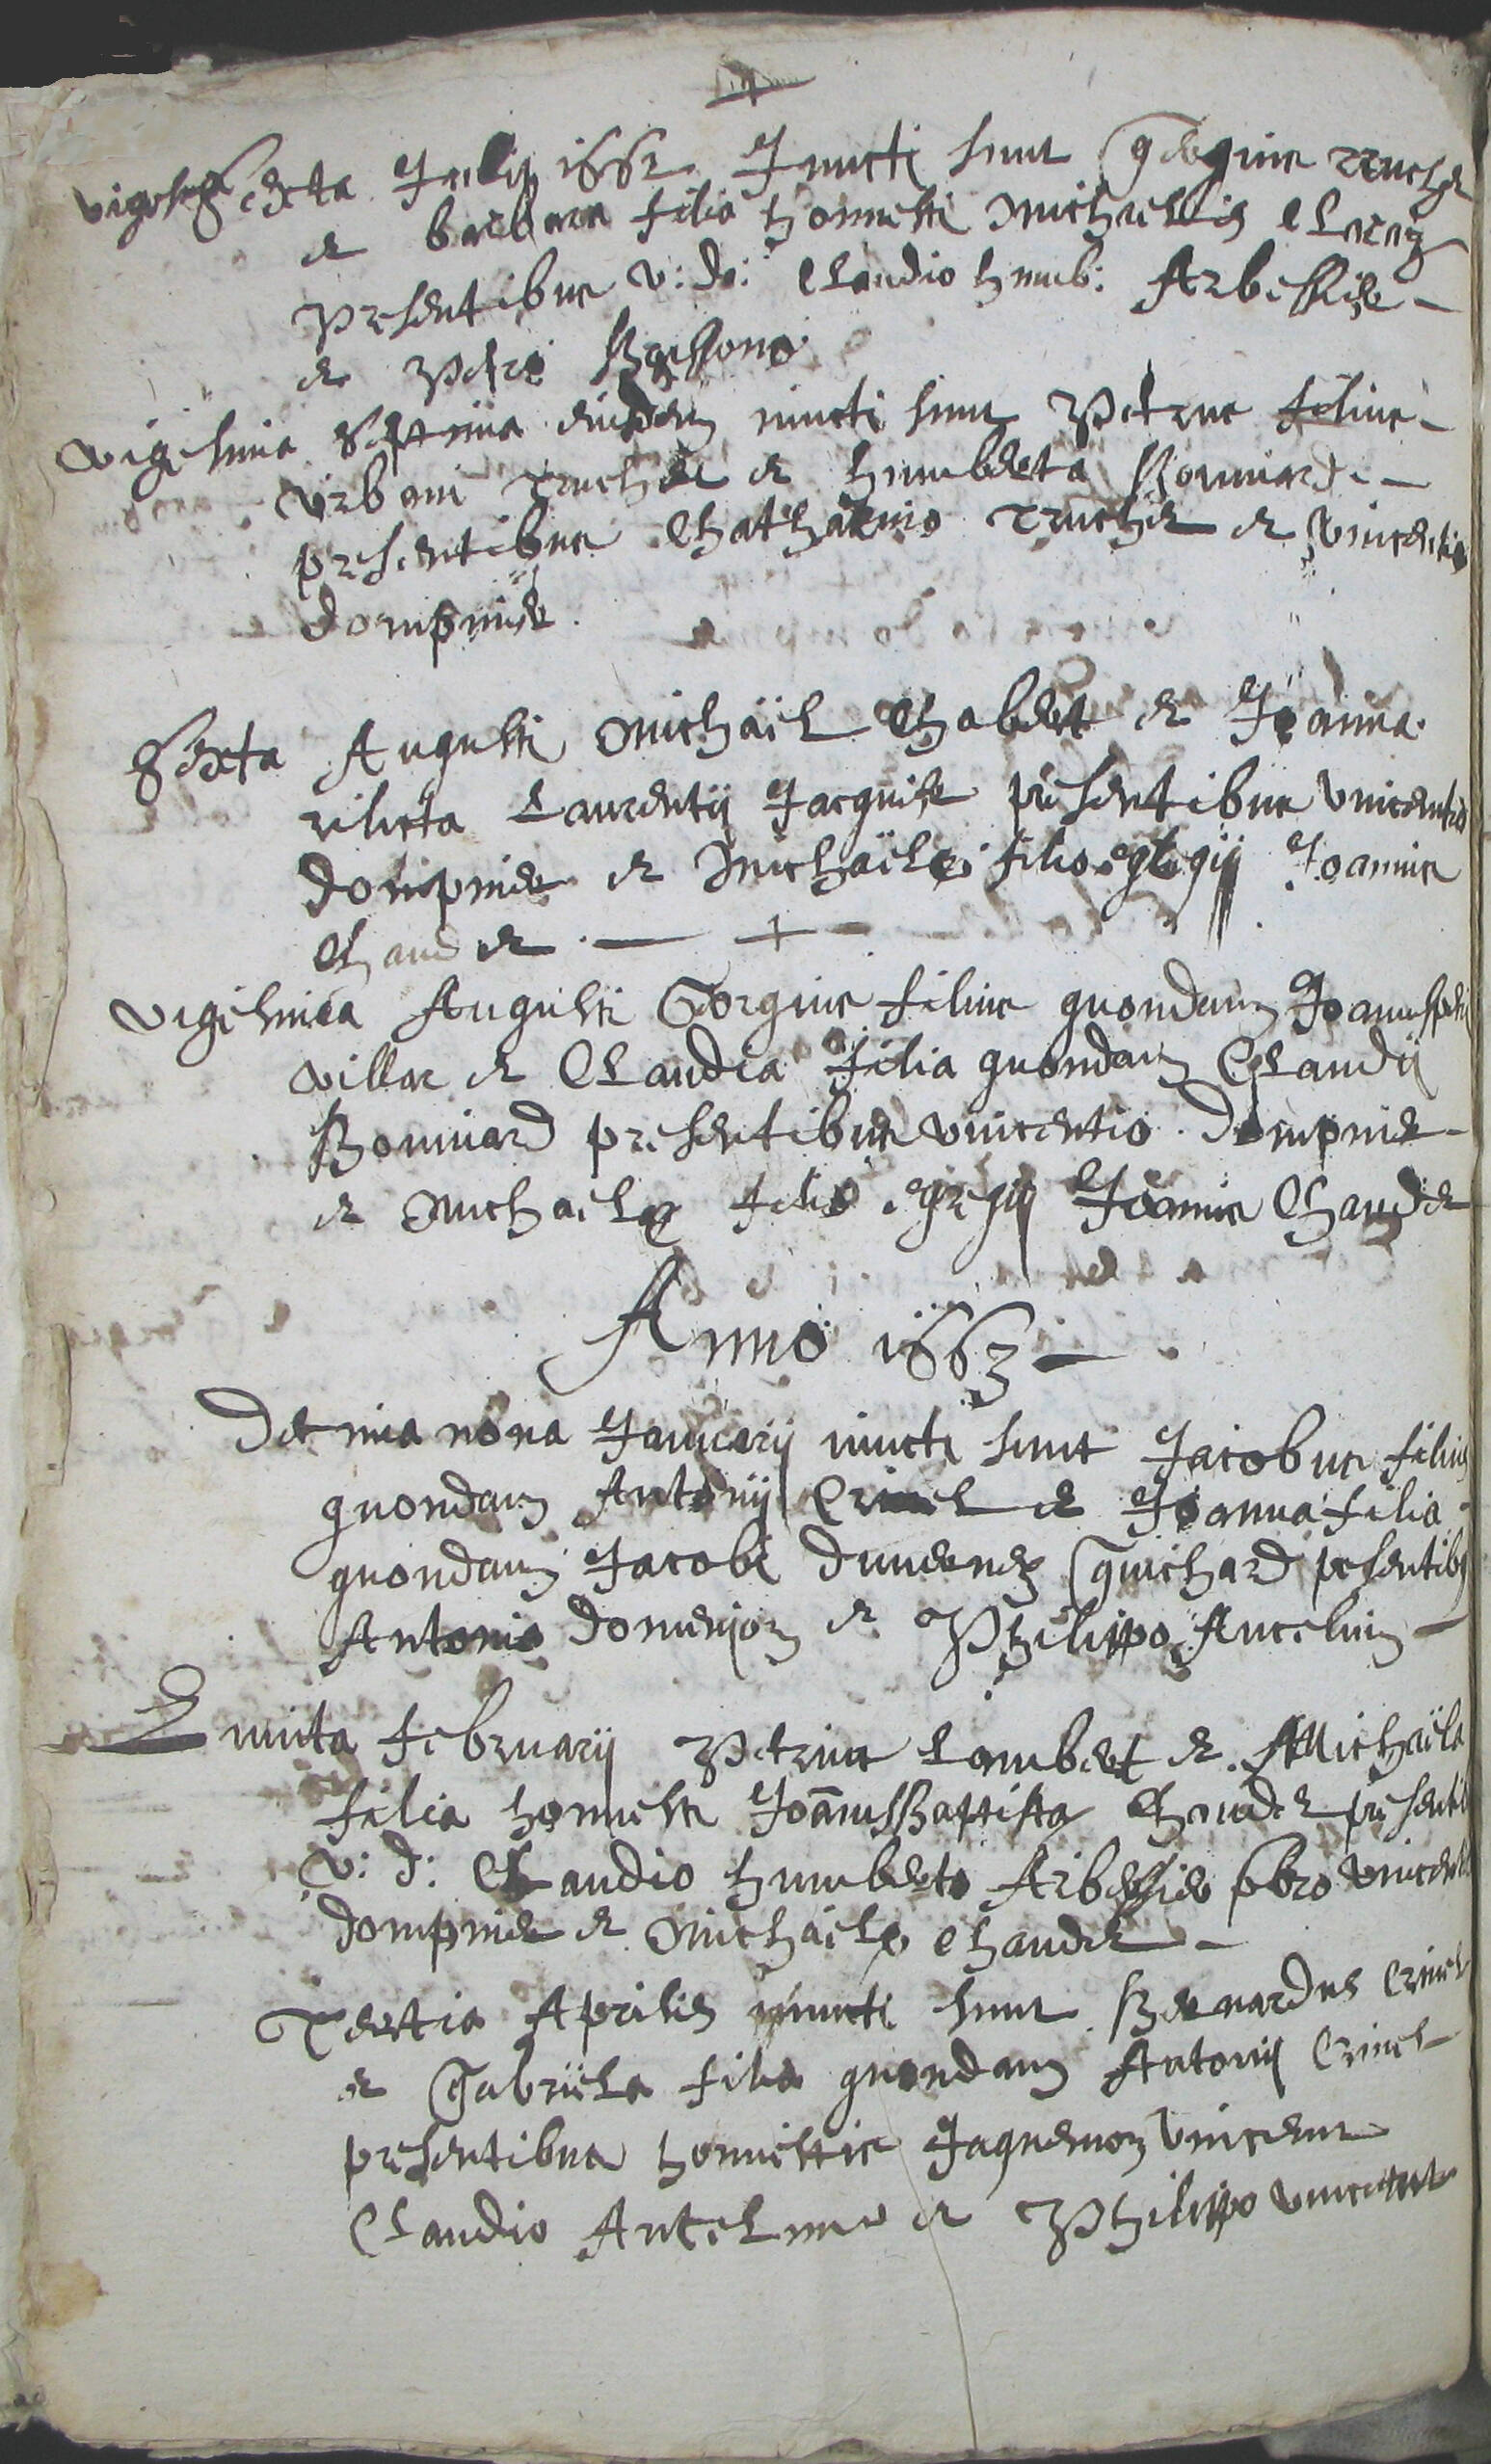 Sexta Julij 1662 Juncti sunt Georgius Truchet
et barbara filia honnesti Michaelis Claraz
presentibus v: do: Claudio humb: Arbessier
et Petro Bessono
vigesima septima eiusdem iuncti sunt Petrus filius
vrbani Truchet et humberta Bonniard
presentibus Chatharino Truchet et vincentio
dompnier.
Sexta Augusti Michaël Chabert et Joanna
relicta Laurentij Jacquier presentibus vincentio
dompnier et Michaële filio egregij Joannis
Chaudet
vigesima Augusti Georgius filius quondam Joannis
villar et Claudia filia quondam Claudij
Bonniard presentibus vincentio dompnier
et Michaele filio egregij Joannis Chaudet
Anno 1663
Decima nona Januarij iuncti sunt Jacobus filius
quondam Antonij Crinel et Joanna filia
quondam Jacobi Guichard presentibus
Antonio domenjon et Philippo Ancelin
Quinta februarij Petrus Lambert et Michaëla
filia honnesti Joannis Baptista Chaudet presentib
v: d: Claudio humberto Arbessier pbro vincentio
dompnier et Michaële Chaudet
Tertia Aprilis iuncti sunt Bernardus Crinel
et Gabriela filia quondam Antonij Crinel
presentibus honnestis Jaquemoz vincent
Claudio Antelme et Philippo vincent